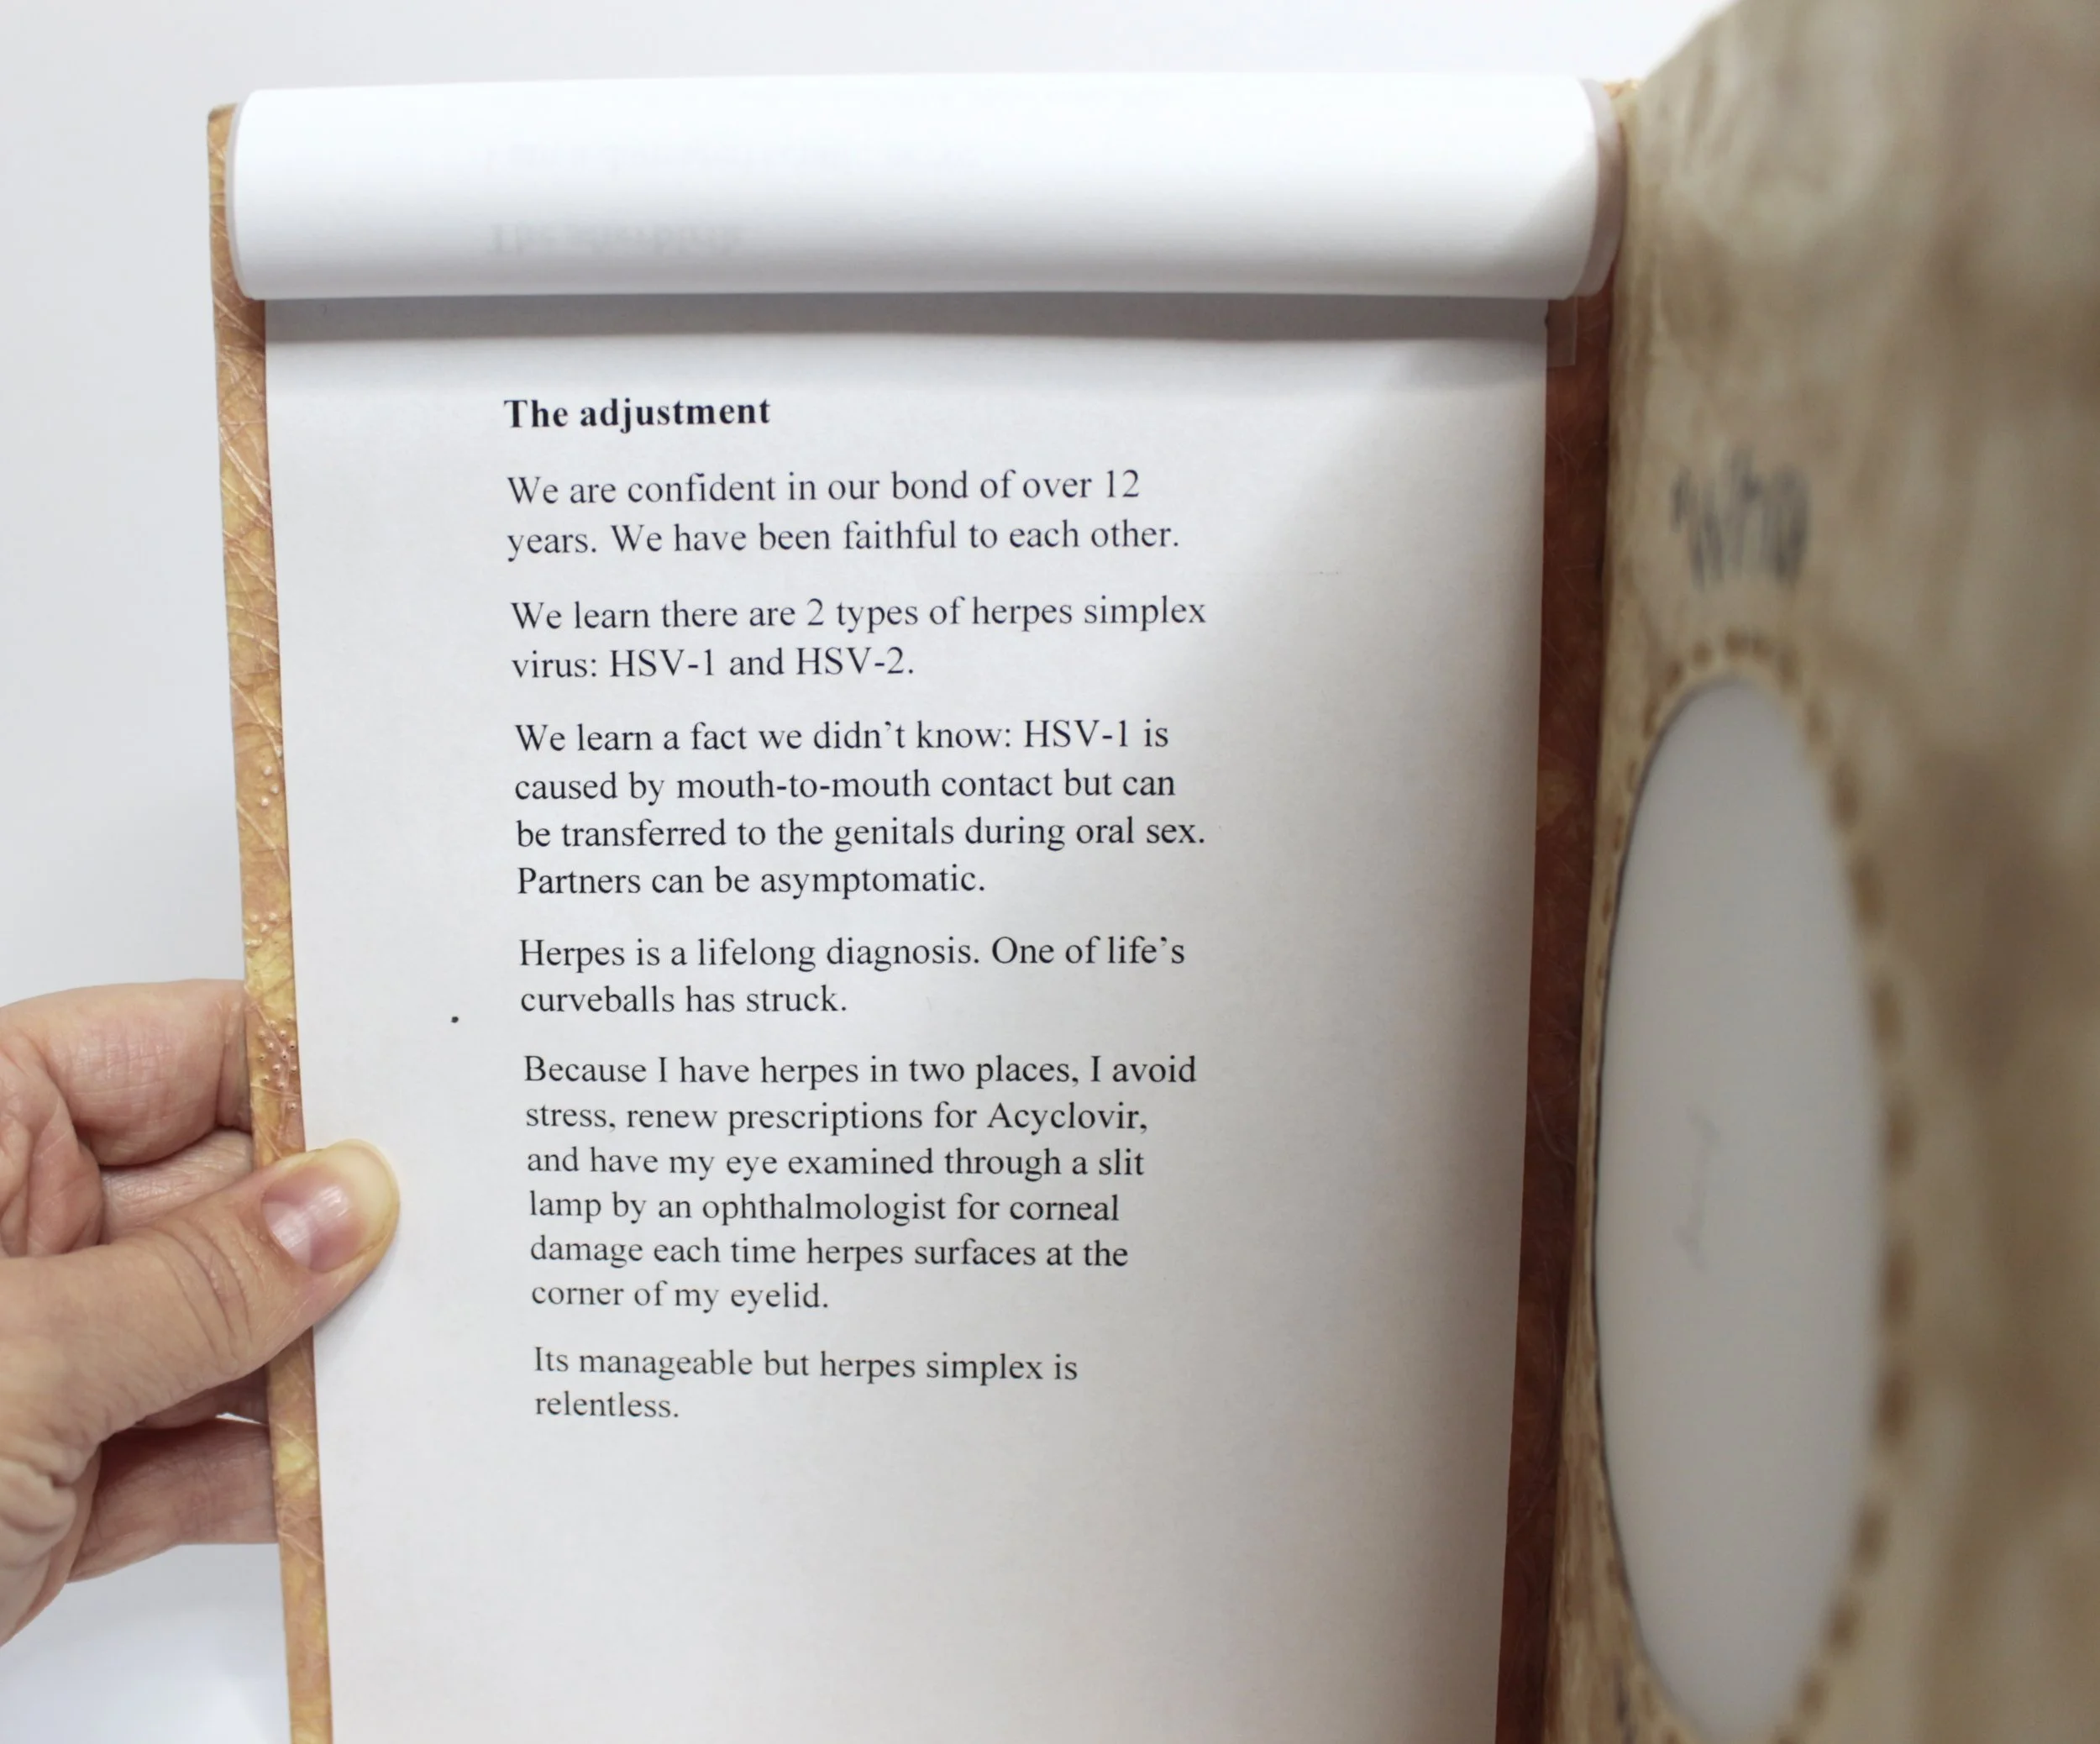 The adjustment
We are confident in our bond of over 12
years. We have been faithful to each other.
We learn there are 2 types of herpes simplex
virus: HSV-1 and HSV-2.
We learn a fact we didn't know: HSV-1 is
caused by mouth-to-mouth contact but can
be transferred to the genitals during oral sex.
Partners can be asymptomatic.
Herpes is a lifelong diagnosis. One of life's
curveballs has struck.
Because I have herpes in two places, I avoid
stress, renew prescriptions for Acyclovir,
and have my eye examined through a slit
lamp by an ophthalmologist for corneal
damage each time herpes surfaces at the
corner of my eyelid.
Its manageable but herpes simplex is
relentless.